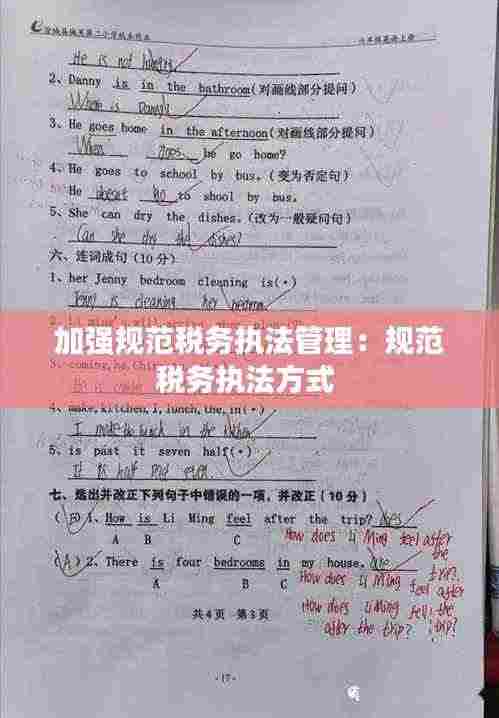 He is not hungry.
2、Danny is in the bathroom(对画线部分提问)
Where is Danny?
3、He goes home in the afternoon(对画线部分提问)
When does he go home?
4、He goes to school by bus。(变为否定句)
He doesn't go to shool by bus.
5、She can dry the dishes。(改为一般疑问句)
Can she dry the dishes?
六、连词成句(10分)
1、her Jenny bedroom cleaning is(·)
Jenny is cleaning her bedroom
加强规范税务执法管理：规范
税务执法方式
3、coming,he,Chin
4、make,kitchen,I,lunch,the,in(·)
I make the lunch in the kitchen
5、is past it seven half(·)
It is half past seven.
七、选出并改正下列句子中错误的一项，并改正(10分)
( B ) 1、How is Li Ming feel after the trip? does
A B C
( A ) 2、There is four bedrooms in my house。 are
A B C
How does Li Ming feel after
the
trip?
How does Li Ming feel after
How does Li Ming feel the
after the trip? trip?
共4页 第3页
-17-